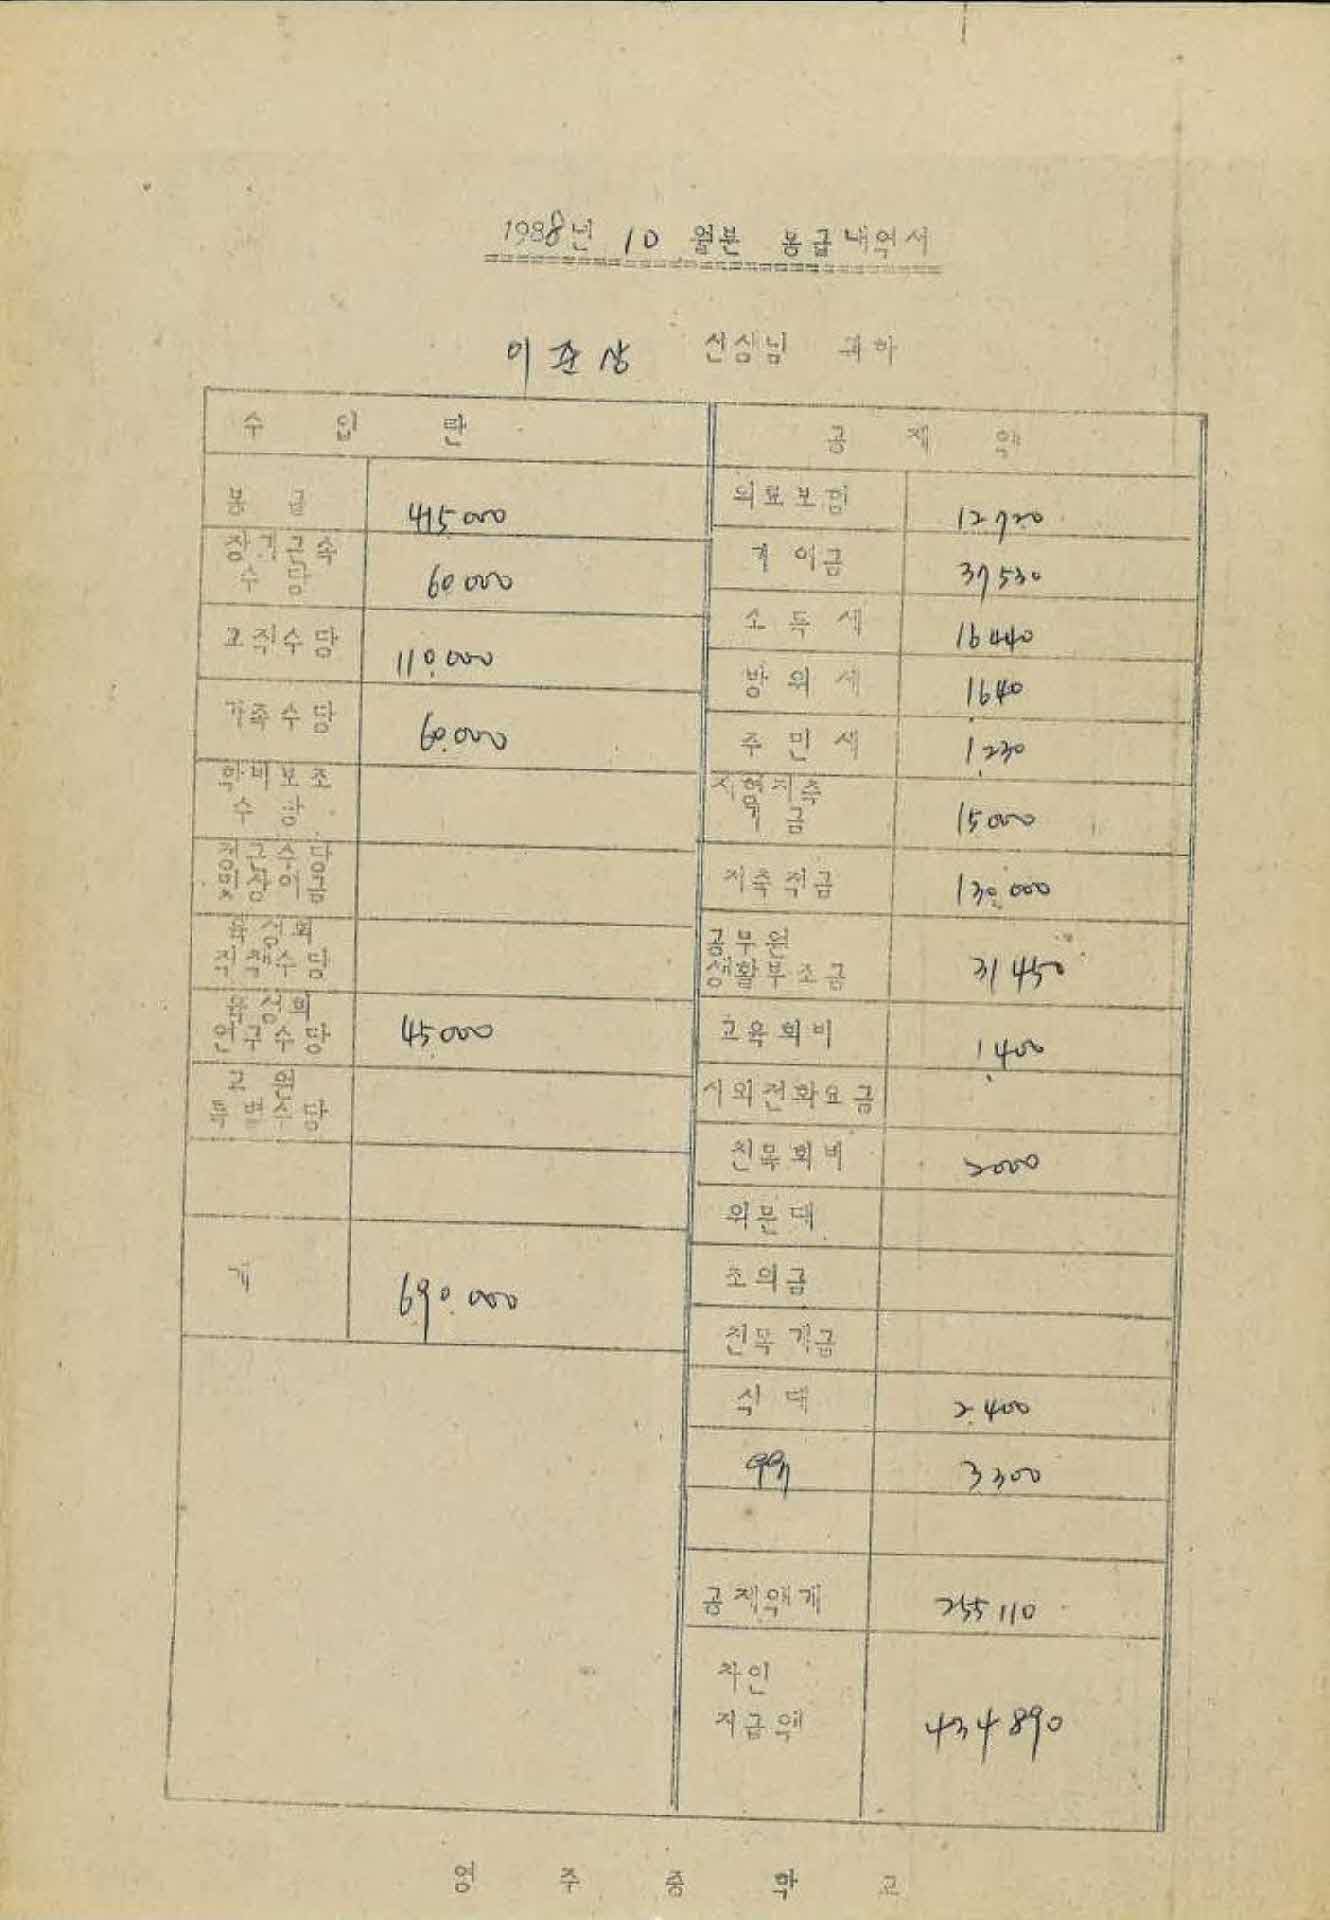 1988년 10 월분 봉급내역서
이준상 선생님 귀하
수 입 란
봉 급 415.000
장기근속
수 당 60.000
교직수당 110.000
가족수당 60.000
학비보조
수 당
정근수당
및상여금
육성회
직책수당
육성회
연구수당 45.000
교 원
특별수당
계 690.000
공 제 액
의료보험 12720
기여금 37530
소 득 세 16440
방 위 세 1640
주 민 세 1.230
15000
저축적금 130.000
공무원
생활부조금 31450
교육회비 1.400
시외전화요금
친목회비 2000
위문대
조의금
친목기금
식 대 2.400
3.300
공제액계 255110
차인
지급액 434890
영 주 중 학 교